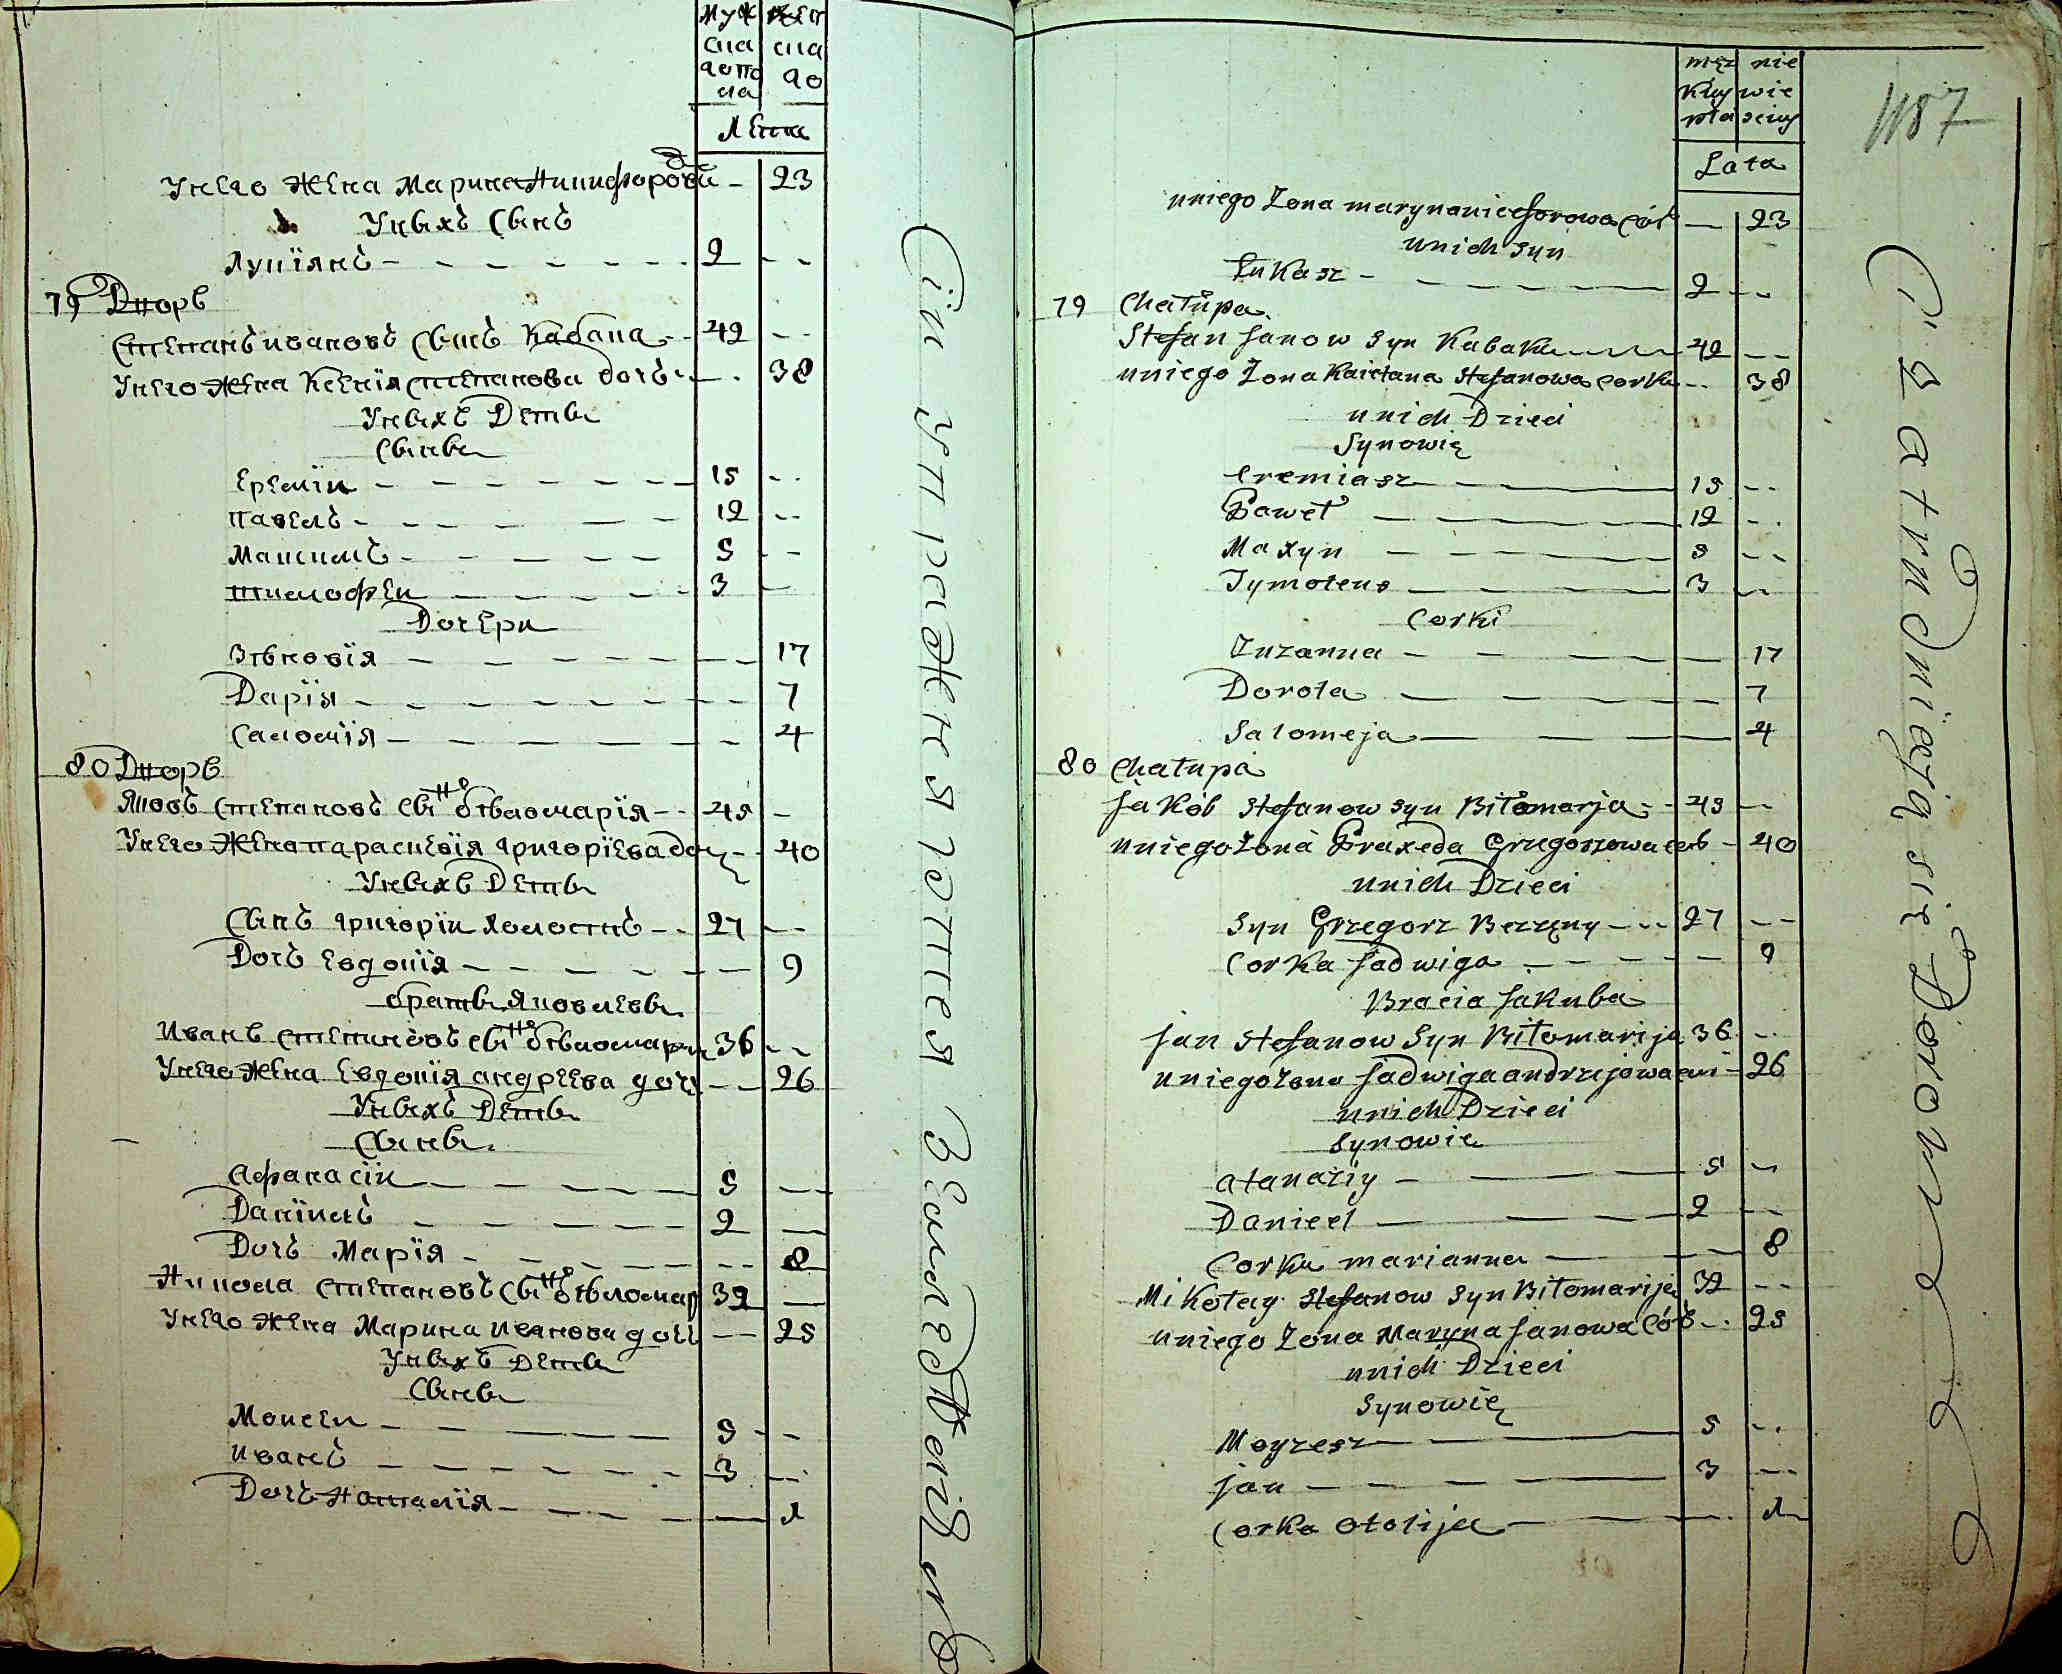 Муж Жен
ска ска
гопо го
ла
Лета
Унего жена Марина Никифорова д
Уныхъ сынъ
Лукїянъ - 2
23
79 Дворъ
Степанъ Ивановъ сынъ Кабака - 42
Унего жена Ксенїя Степанова дочь - 38
Уныхъ Дети
Сыны
Еремїи - 15
Павелъ - 12
Максимъ - 5
Тимофеи - 3
Дочери
Зѣновїя - 17
Дарїя - 7
Саломїя - 4
80 Дворъ
Яковъ Степановъ сынъ бѣломарїя - 45
Унего жена Параскевїя григорїева доч - 40
Уныхъ Дети
Сынъ григорїи холостъ - 27
Дочь Евдокїя - 9
братья Яковлевы
Иванъ Степановъ сынъ бѣломари 36
Унего жена Евдокїя андреева доч - 26
Уныхъ Дети
Сыны
Афанасїи - 5
Данїилъ - 2
Дочь Марїя - 8
Никола Степановъ сынъ бѣломар 32
Унего жена Марина Иванова доч - 25
Уныхъ Дети
Сыны
Моисеи - 5
Иванъ - 3
Дочь Наталїя - 1
Сіи упражняютея Земледѣліемъ
męz nie
kuy wie
pła sciuy
Lata
1187
uniego Zona maryna niceforowa cór - 23
unich syn
Łukasz - 2
79 Chałupa
Stefan Janow Syn Kabaka 42
uniego Zona Kaietana Stefanowa corka - 38
unich Dzieci
Synowię
Eremiasz 15
Paweł 12
Maxym 5
Tymoteus 3
Corki
Zuzanna 17
Dorota 7
Salomeja 4
80 Chałupa
Jakób Stefanow syn Biłomarja - 45
uniego Zona Praxeda Grzegorzowa cor - 40
unich Dzieci
Syn Grzegorz Bezzęny - 27
Corka Jadwiga - 9
Bracia Jakuba
Jan Stefanow Syn Biłomarija 36
uniego zona Jadwiga andrzejowa cor - 26
unich Dzieci
Synowie
atanaziy - 5
Danieel - 2
Corka marianna - 8
Mikołay Stefanow Syn Biłomarija 32
uniego Zona Maryna Janowa cór - 25
unich Dzieci
Synowię
Moyzesz - 5
Jan - 3
Corka Otolija - 1
Ci zatrudnieją się Dorow